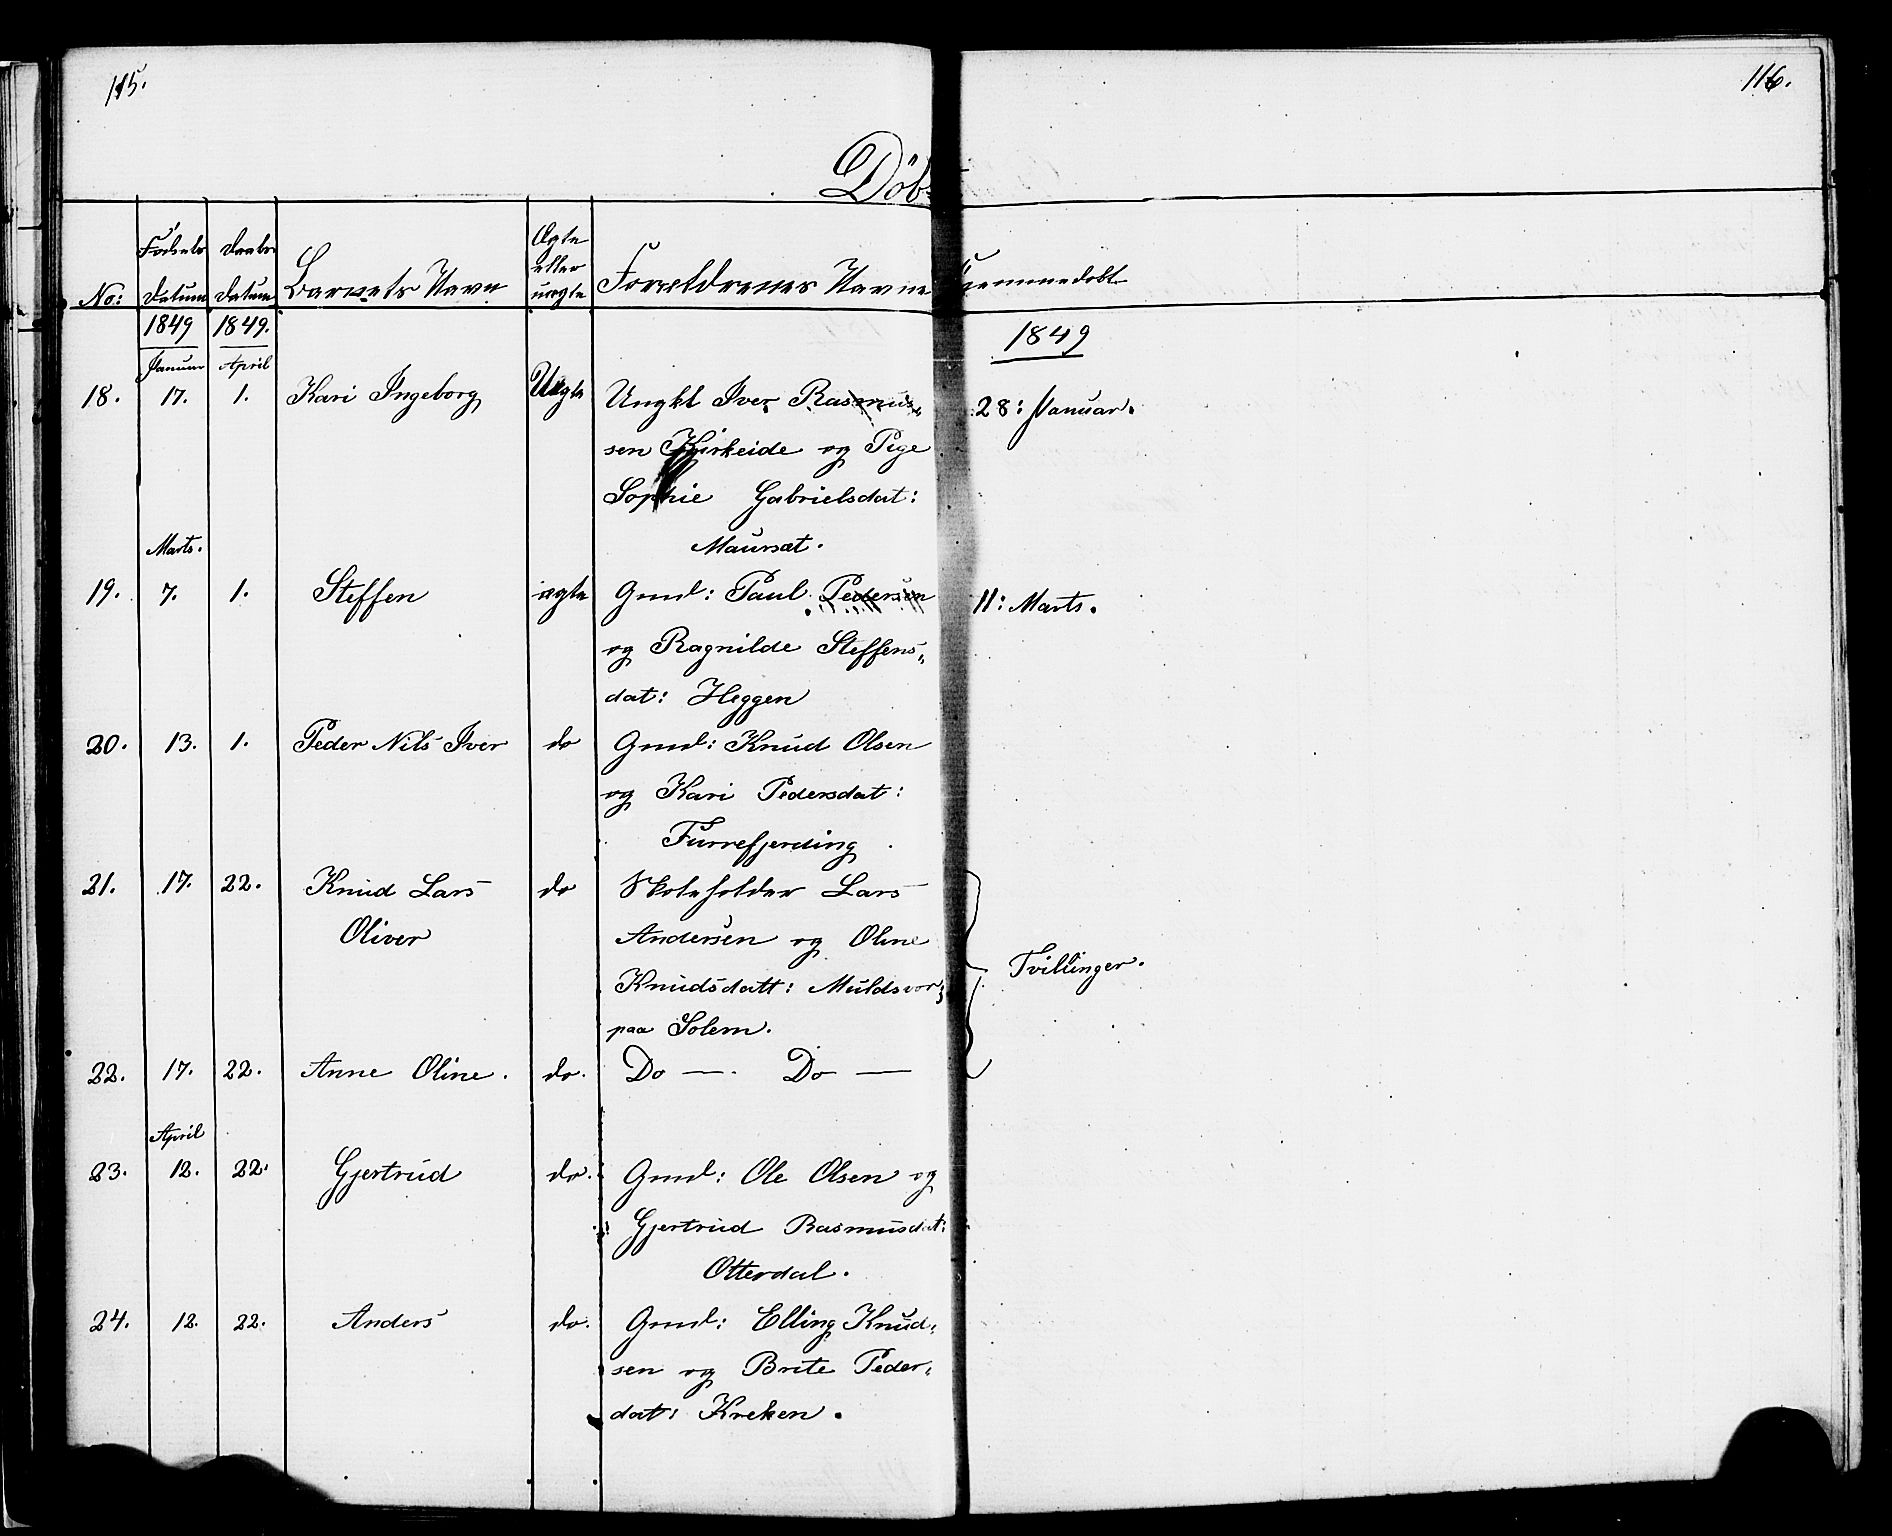 115.
116.
Döb-
No:
Födsels
Datum
Daabs
Datum
Barnets Navn
Ægte
eller
uægte
Forældrenes Navne
Hjemmedøbt
1849 1849.
1849
Januar April
18. 17. 1. Kari Ingeborg Uægte Ungkl Iver Rasmus- 28: Januar.
sen Kirkeide og Pige
Sophie Gabrielsdat:
Maursæt.
Marts.
19. 7. 1. Steffen ægte Gmd: Paul Pedersen 11: Marts.
og Ragnilde Steffens-
dat: Heggen
20. 13. 1. Peder Nils Iver do Gmd: Knud Olsen
og Kari Pedersdat:
Furrefjerding
21. 17. 22. Knud Lars do Skoleholder Lars
Oliver Andersen og Oline
Tvillinger.
Knudsdatt: Muldsvor
paa Solem.
22. 17. 22. Anne Oline. do. Do — Do —
April
23. 12. 22. Gjertrud do. Gmd: Ole Olsen og
Gjertrud Rasmusdat:
Otterdal.
24. 12. 22. Anders do. Gmd: Elling Knud-
sen og Brite Peder-
dat: Kreken.